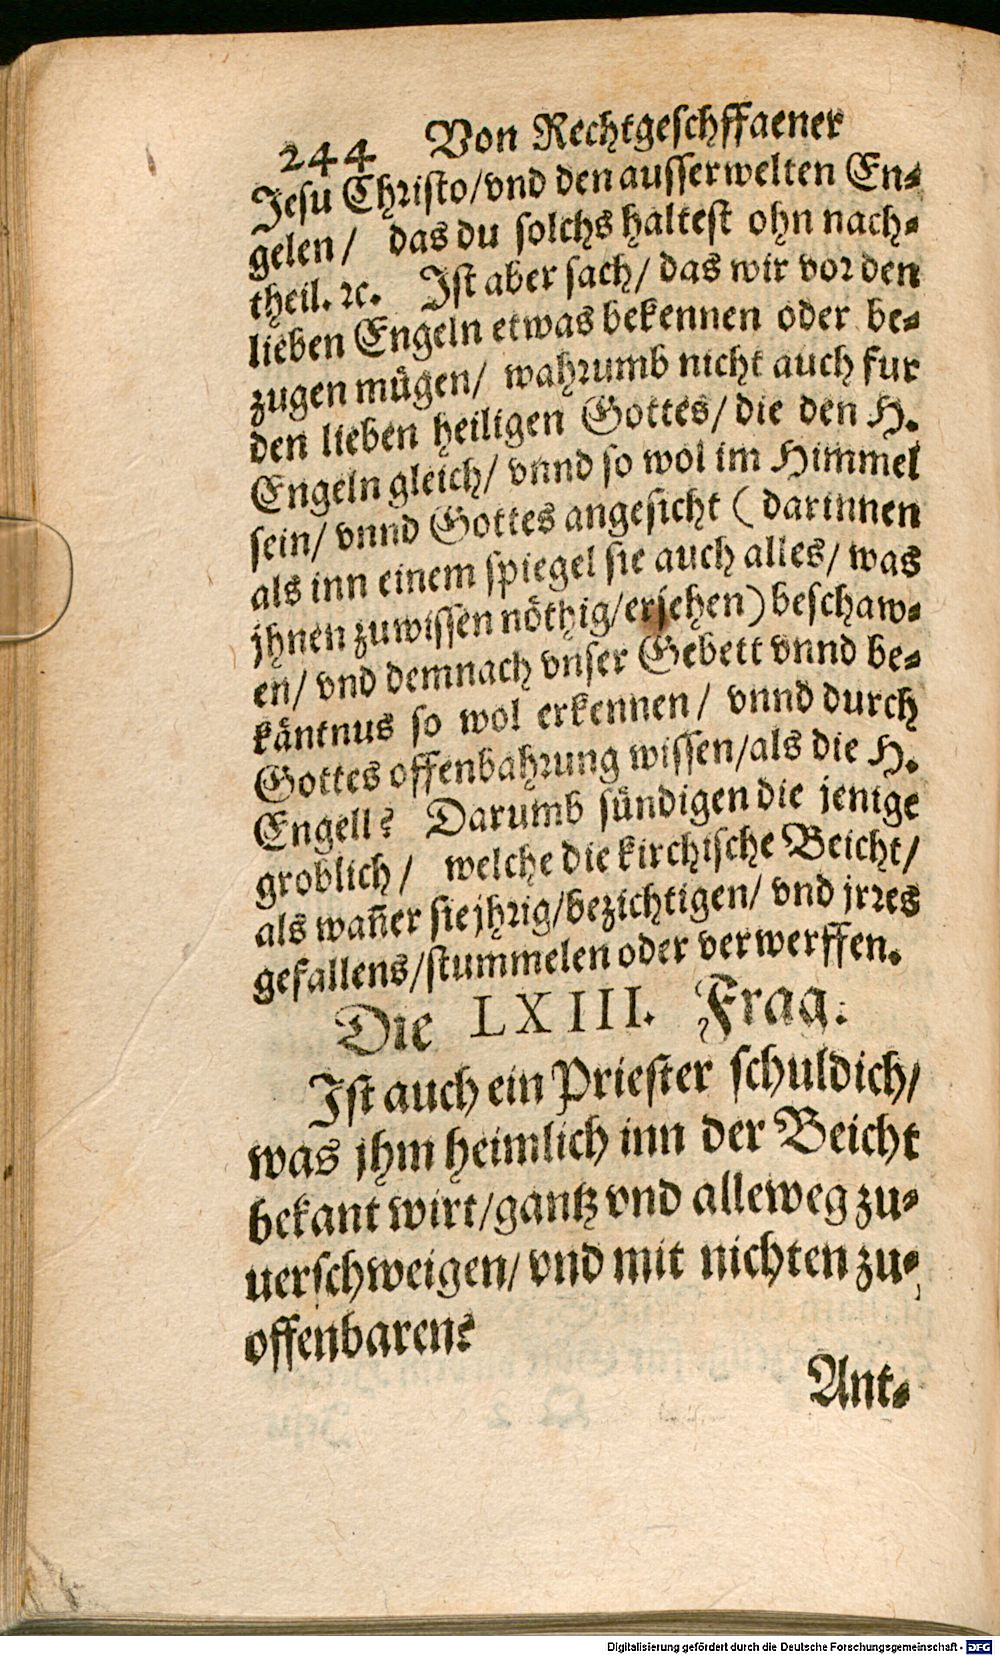 244 Von Rechtgeschffaener
Jesu Christo/vnd den ausserwelten En⸗
gelen/ das du solchs haltest ohn nach⸗
theil. ꝛc. Ist aber sach/ das wir vor den
lieben Engeln etwas bekennen oder be⸗
zugen mügen/ wahrumb nicht auch fur
den lieben heiligen Gottes/ die den H.
Engeln gleich/ vnnd so wol im Himmel
sein/ vnnd Gottes angesicht (darinnen
als inn einem spiegel sie auch alles/ was
jhnen zuwissen nöthig/ersehen) beschaw⸗
en/ vnd demnach vnser Gebett vnnd be⸗
käntnus so wol erkennen/ vnnd durch
Gottes offenbahrung wissen/als die H.
Engell? Darumb sündigen die jenige
groblich/ welche die kirchische Beicht/
als wañer sie jhrig/bezichtigen/ vnd jrres
gefallens/stummelen oder verwerffen.
Die LXIII. Frag.
Ist auch ein Priester schuldich/
was jhm heimlich inn der Beicht
bekant wirt/gantz vnd alleweg zu⸗
uerschweigen/ vnd mit nichten zu⸗
offenbaren?
Ant⸗
Digitalisierung gefördert durch die Deutsche Forschungsgemeinschaft - DFG